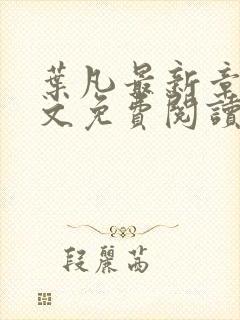 葉凡最新章
文免費閱讀
段麗茜